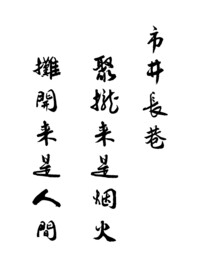 市井長巷
聚攏来是烟火
攤開来是人間